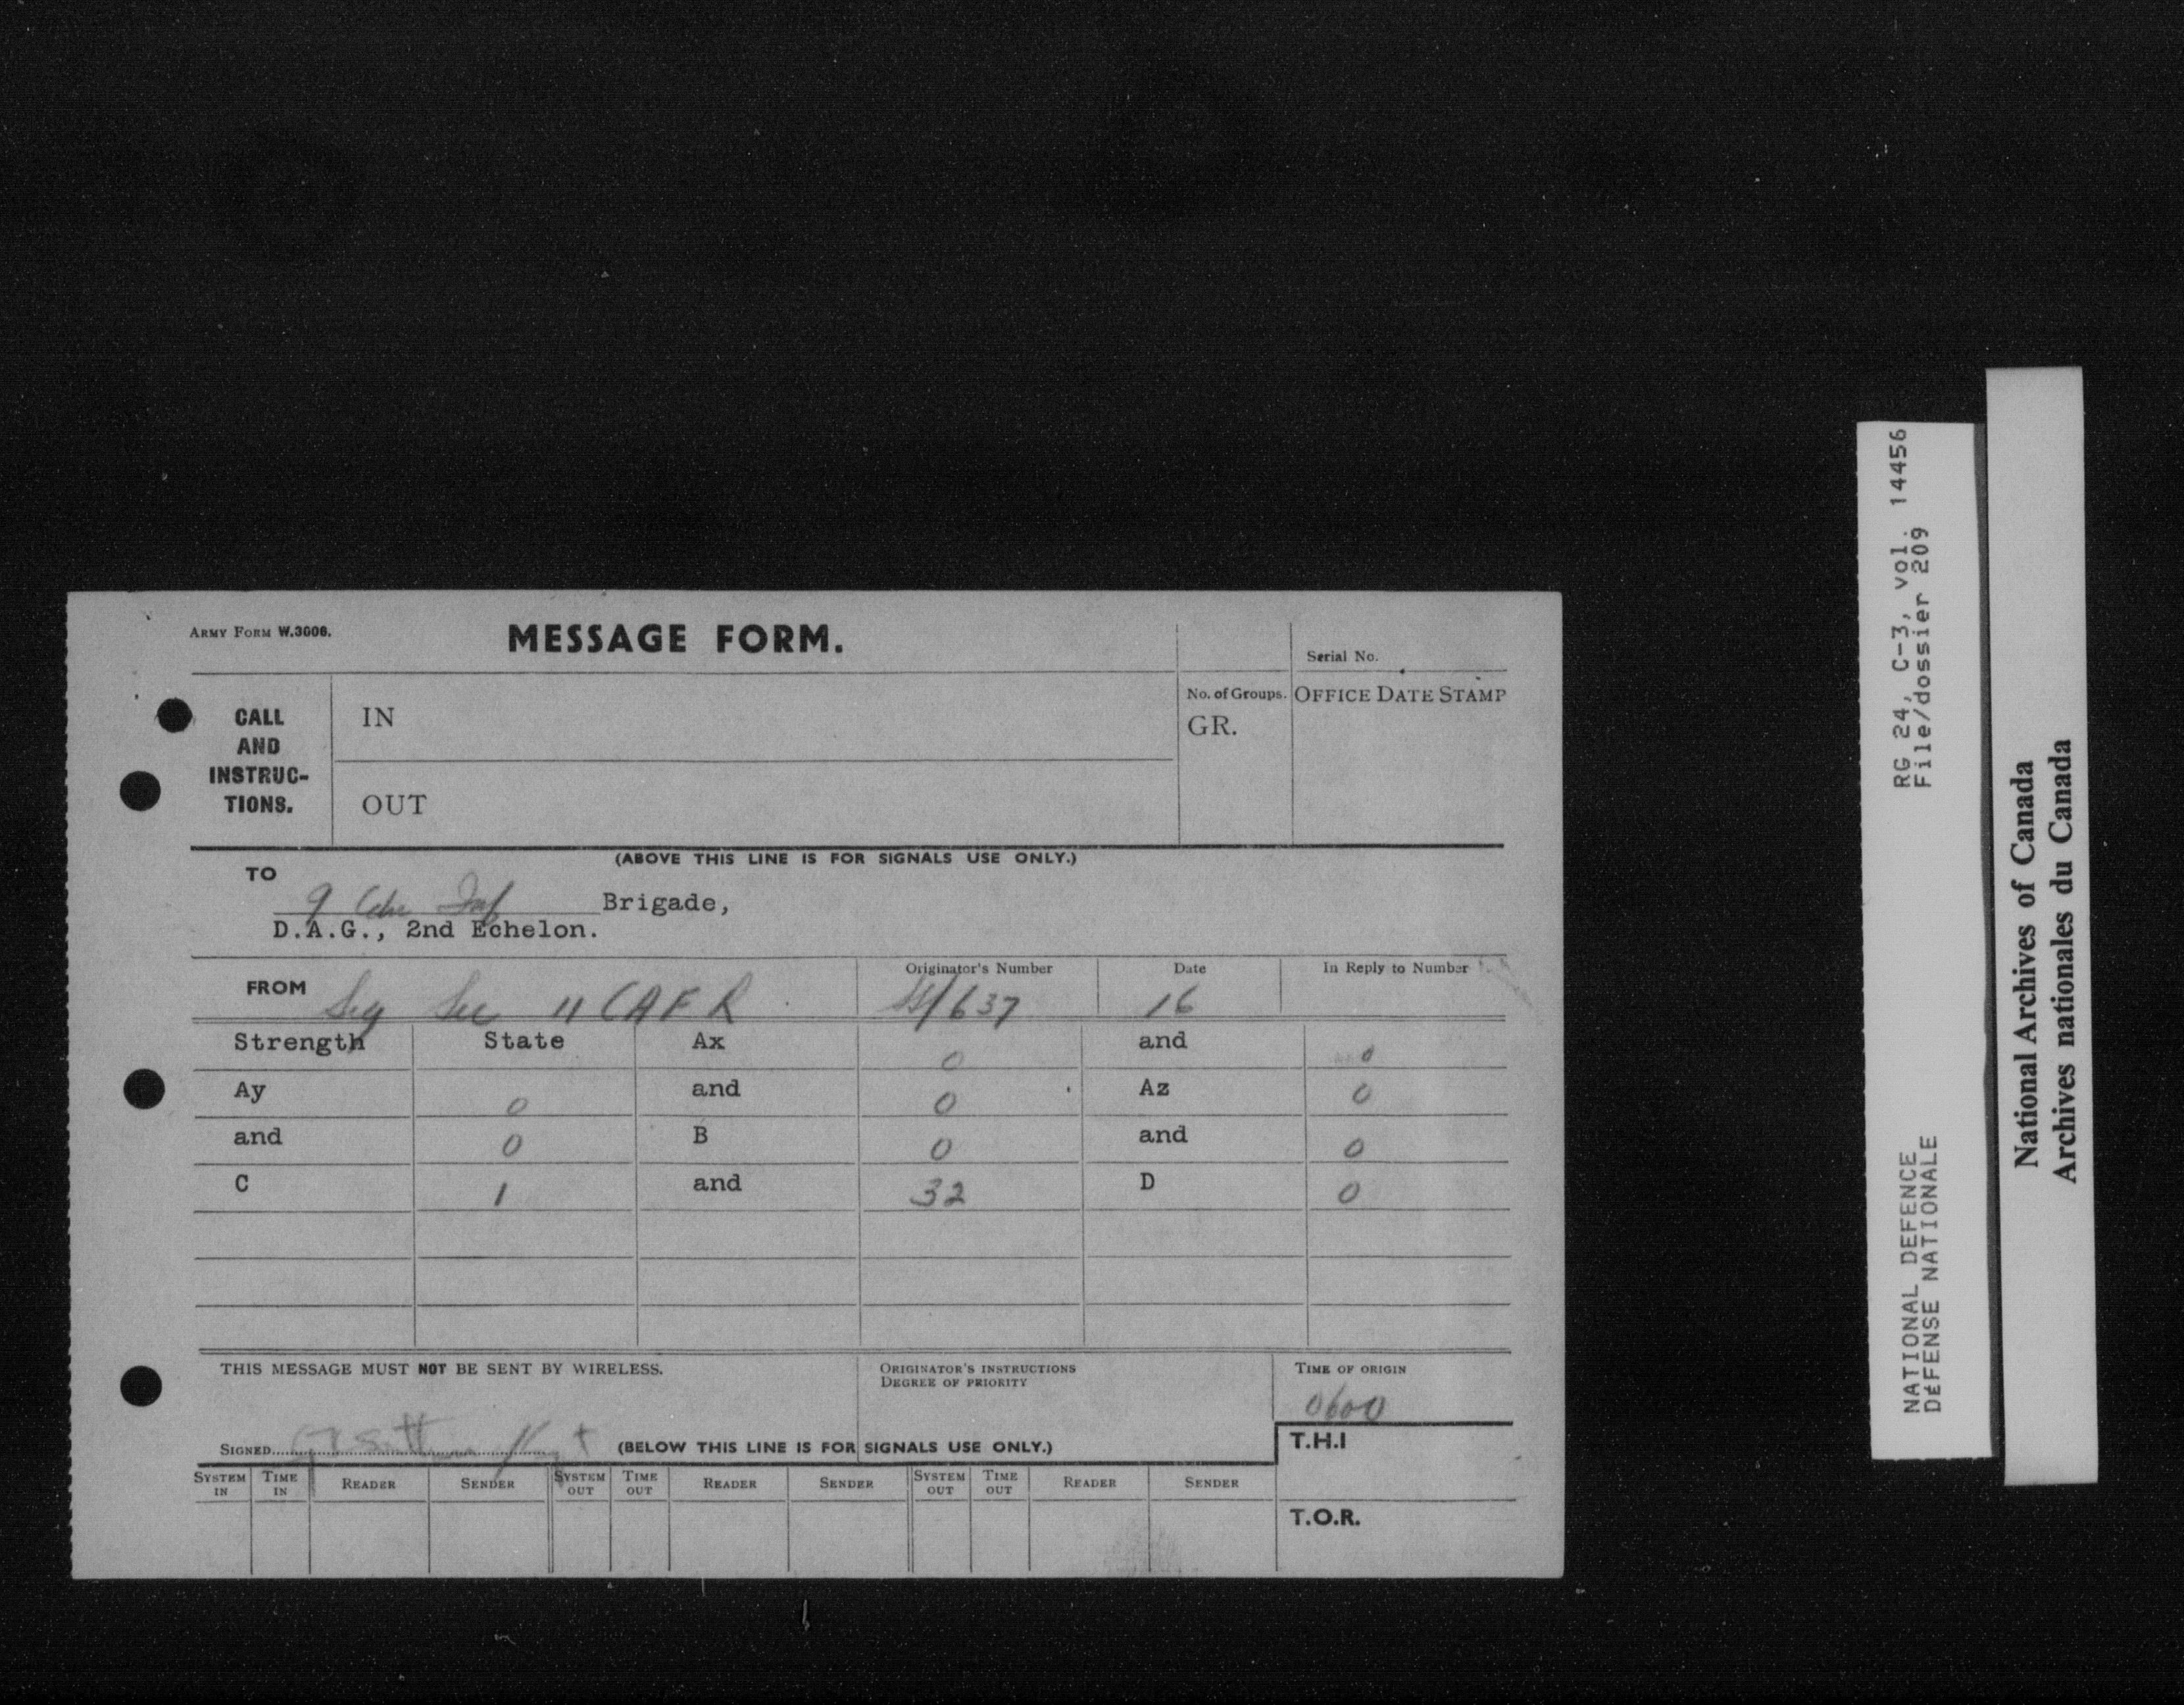 ARMY FORM W.3006.
MESSAGE FORM.
Serial No.
CALL AND INSTRUC-TIONS.
IN
No. of Groups.
GR.
OFFICE DATE STAMP
OUT
(ABOVE THIS LINE IS FOR SIGNALS USE ONLY.)
TO
9 Cdn Inf Brigade,
D.A.G., 2nd Echelon.
FROM Sig Sec 11 CAFR
Originator's Number
/637
Date
16
In Reply to Number
Strength State Ax 0 and 0
Ay 0 and 0 Az 0
and 0 B 0 and 0
C 1 and 32 D 0
THIS MESSAGE MUST NOT BE SENT BY WIRELESS.
ORIGINATOR'S INSTRUCTIONS
DEGREE OF PRIORITY
TIME OF ORIGIN
0600
SIGNED
(BELOW THIS LINE IS FOR SIGNALS USE ONLY.)
T.H.I
SYSTEM IN TIME IN READER SENDER SYSTEM OUT TIME OUT READER SENDER SYSTEM OUT TIME OUT READER SENDER
T.O.R.
RG 24, C-3, vol. 14456
File/dossier 209
NATIONAL DEFENCE
DÉFENSE NATIONALE
National Archives of Canada
Archives nationales du Canada